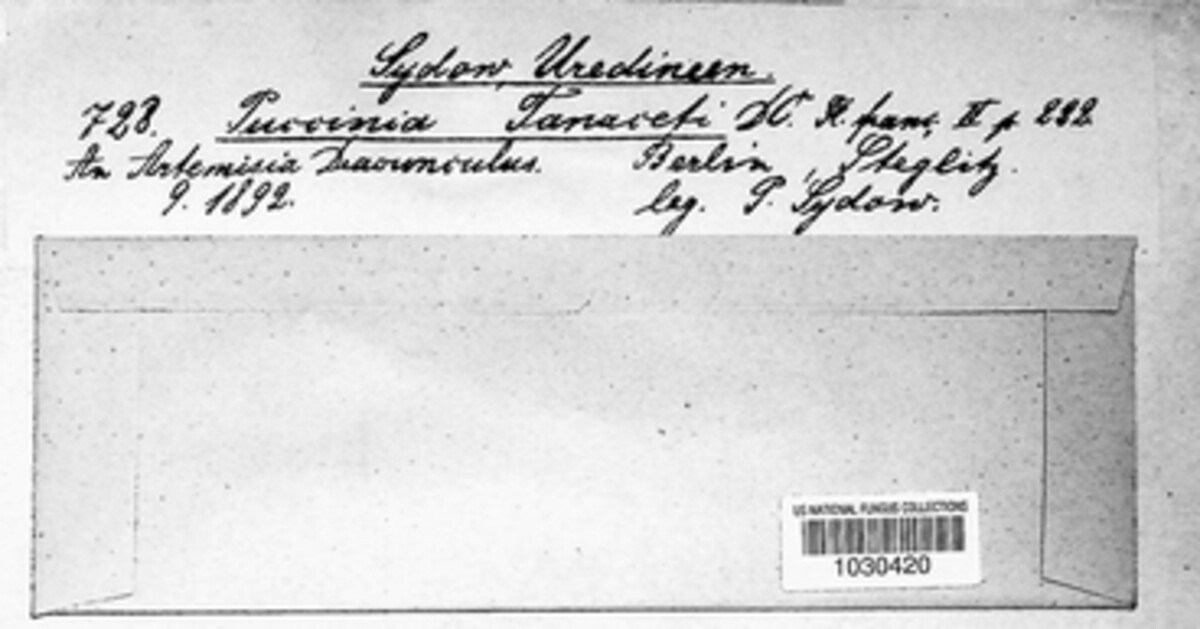 Sydow, Uredineen.
728. Puccinia Tanaceti DC. Fl. franç. II p. 222.
An Artemisia Dracunculus. Berlin, Steglitz.
9. 1892. leg. P. Sydow.
US NATIONAL FUNGUS COLLECTIONS
1030420